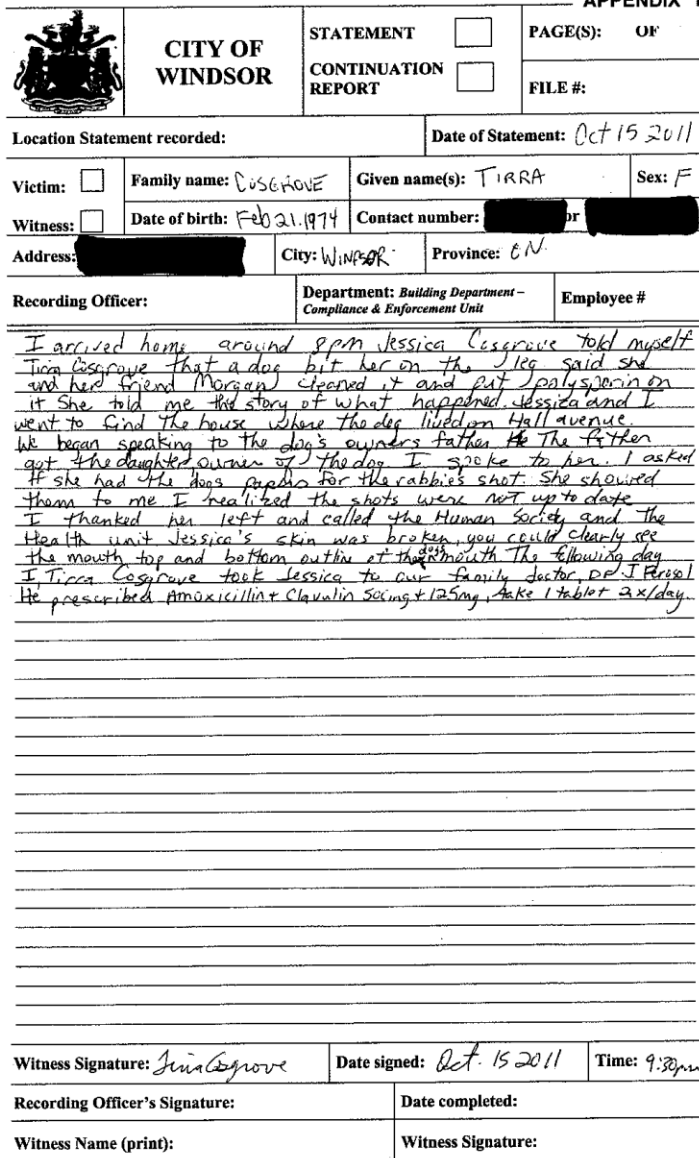 APPENDIX
CITY OF WINDSOR
STATEMENT
CONTINUATION REPORT
PAGE(S): OF
FILE #:
Location Statement recorded:
Date of Statement: Oct 15 2011
Victim:
Family name: COSGROVE
Given name(s): TIRRA
Sex: F
Witness:
Date of birth: Feb 21.1974
Contact number: or
Address:
City: WINDSOR
Province: ON.
Recording Officer:
Department: Building Department – Compliance & Enforcement Unit
Employee #
I arrived home around 8pm Jessica Cosgrove told myself
Tirra Cosgrove that a dog bit her on the leg said she
and her friend Morgan cleaned it and put polysperin on
it She told me the story of what happened. Jessica and I
went to find the house where the dog lived on Hall avenue.
We began speaking to the dog's owners father The father
got the daughter, owner of the dog I spoke to her. I asked
If she had the dogs papers for the rabbies shot. She showed
them to me I realized the shots were not up to date
I thanked her left and called the Human Society and The
Health unit Jessica's skin was broken, you could clearly see
the mouth top and bottom outline of the dogs mouth The following day
I, Tirra Cosgrove took Jessica to our family doctor, DR J
He prescribed Amoxicillin + Clavulin 500mg + 125mg, take 1 tablet 2x/day.
Witness Signature: Tirra Cosgrove
Date signed: Oct. 15 2011
Time: 9:30pm
Recording Officer's Signature:
Date completed:
Witness Name (print):
Witness Signature: